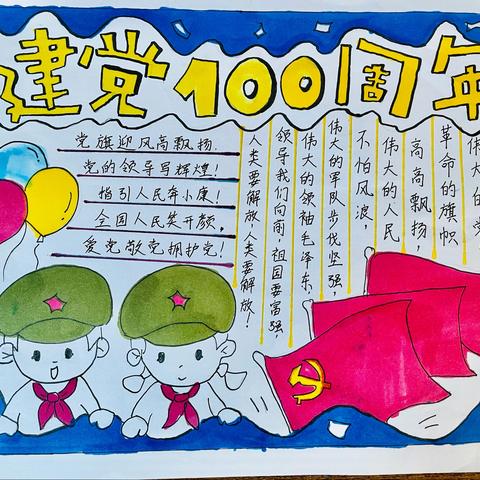 建党100周年
党旗迎风高飘扬.
党的领导写辉煌!
指引人民奔小康!
全国人民笑开颜,
爱党敬党拥护党!
伟大的党
革命的旗帜
高高飘扬,
伟大的人民
不怕风浪,
伟大的军队步伐坚强,
伟大的领袖毛泽东,
领导我们向前,祖国要富强,
人类要解放,人类要解放!